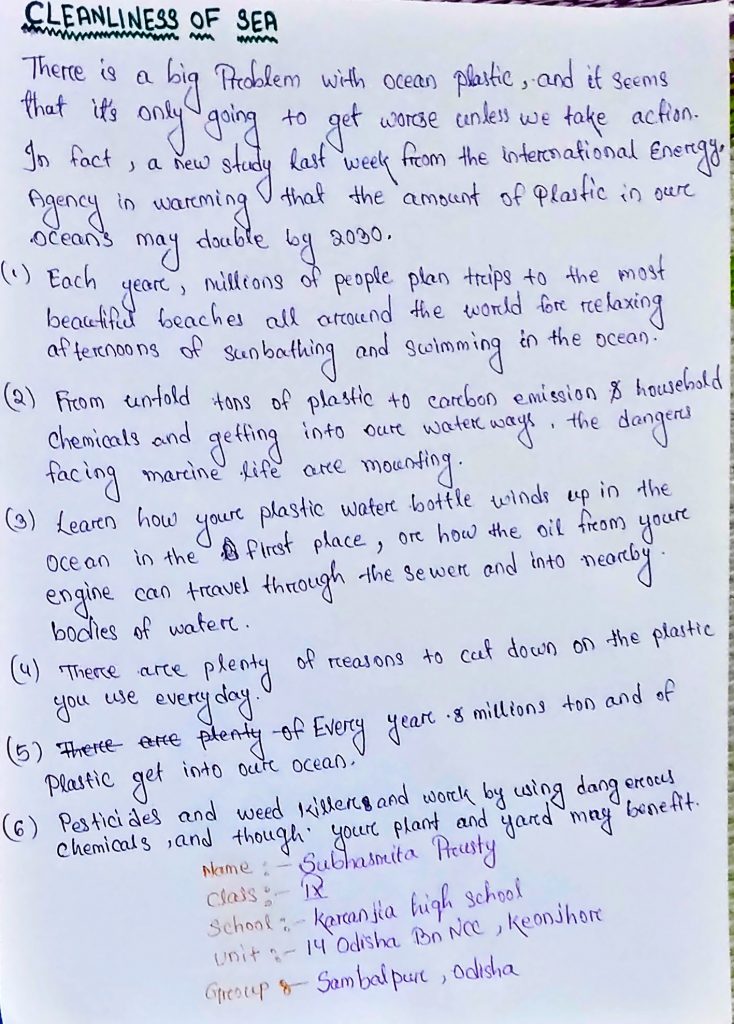 CLEANLINESS OF SEA
There is a big Problem with ocean plastic, and it seems
that it's only going to get worse unless we take action.
In fact, a new study last week from the international Energy.
Agency in warming that the amount of Plastic in our
oceans may double by 2030.
(1) Each year, millions of people plan trips to the most
beautiful beaches all around the world for relaxing
afternoons of sunbathing and swimming in the ocean.
(2) From untold tons of plastic to carbon emission & household
Chemicals and getting into our water ways, the dangers
facing marine life are mounting.
(3) Learn how your plastic water bottle winds up in the
Ocean in the first place, or how the oil from your
engine can travel through the sewer and into nearby.
bodies of water.
(4) There are plenty of reasons to cut down on the plastic
you use every day.
(5) There are plenty of Every year 8 millions ton and of
Plastic get into our ocean.
(6) Pesticides and weed killers and work by using dangerous
chemicals, and though your plant and yard may benefit.
Name :- Subhasmita Prusty
Class :- IX
School :- Karanjia high school
Unit :- 14 Odisha Bn Ncc, Keonjhor
Group :- Sambalpur, Odisha